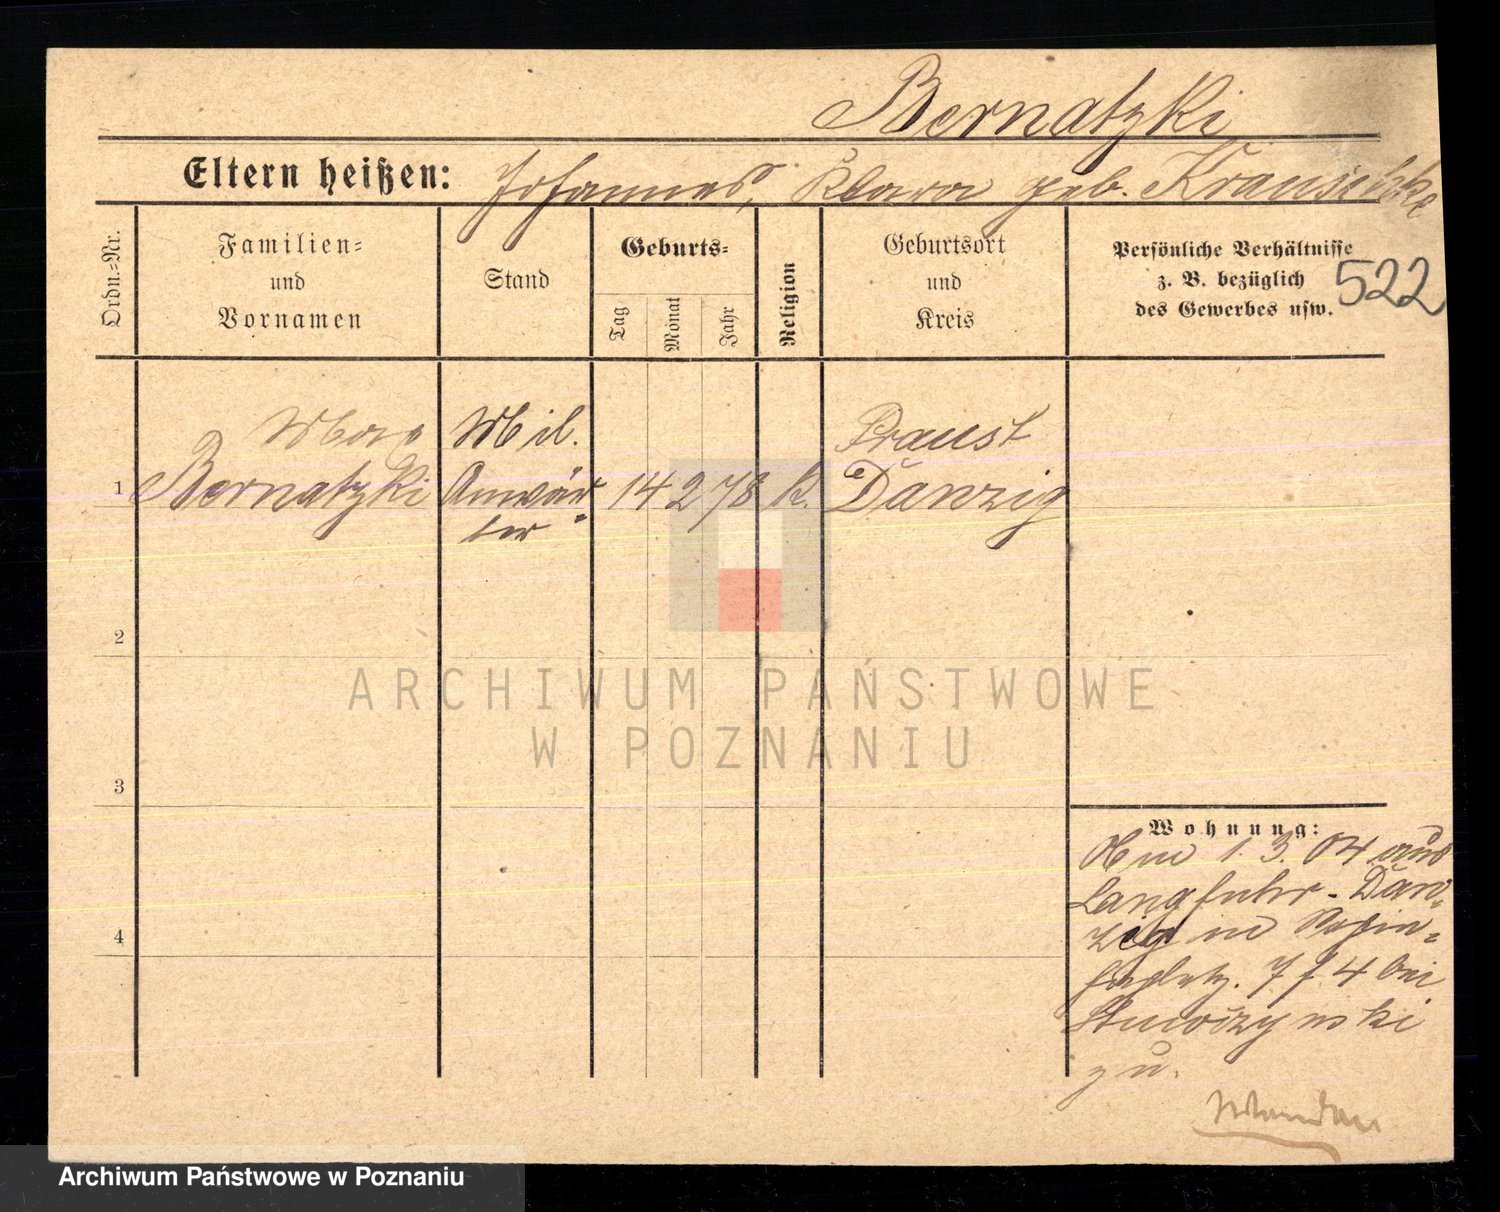 Bernatzki
Eltern heißen: Johannes, Klara geb. Krauschke
Ordn.-Nr.
Familien-
und
Vornamen
Stand
Geburts-
Tag
Monat
Jahr
Religion
Geburtsort
und
Kreis
Persönliche Verhältnisse
z. B. bezüglich
des Gewerbes usw.
522
Max Mil. Praust
1 Bernatzki Anwär- 14 2 78 k. Danzig
ter
2
3
4
Wohnung:
1. 3. 04 aus
Langfuhr-Dan-
zig
4 bei
zu.
ARCHIWUM PAŃSTWOWE
W POZNANIU
Archiwum Państwowe w Poznaniu